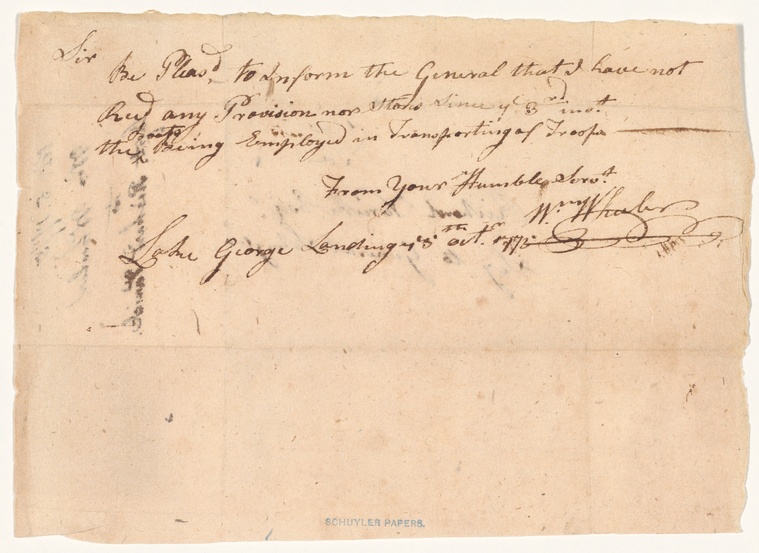 Sir
Be Pleasd to Inform the General that I have not
Recd any Provision nor Stors Since ye 3rd inst
the Being Employed in Transporting of Troops
From Your Humble Servt
Wm Wheeler
Lake George Landing 13th Octr. 1775
SCHUYLER PAPERS.